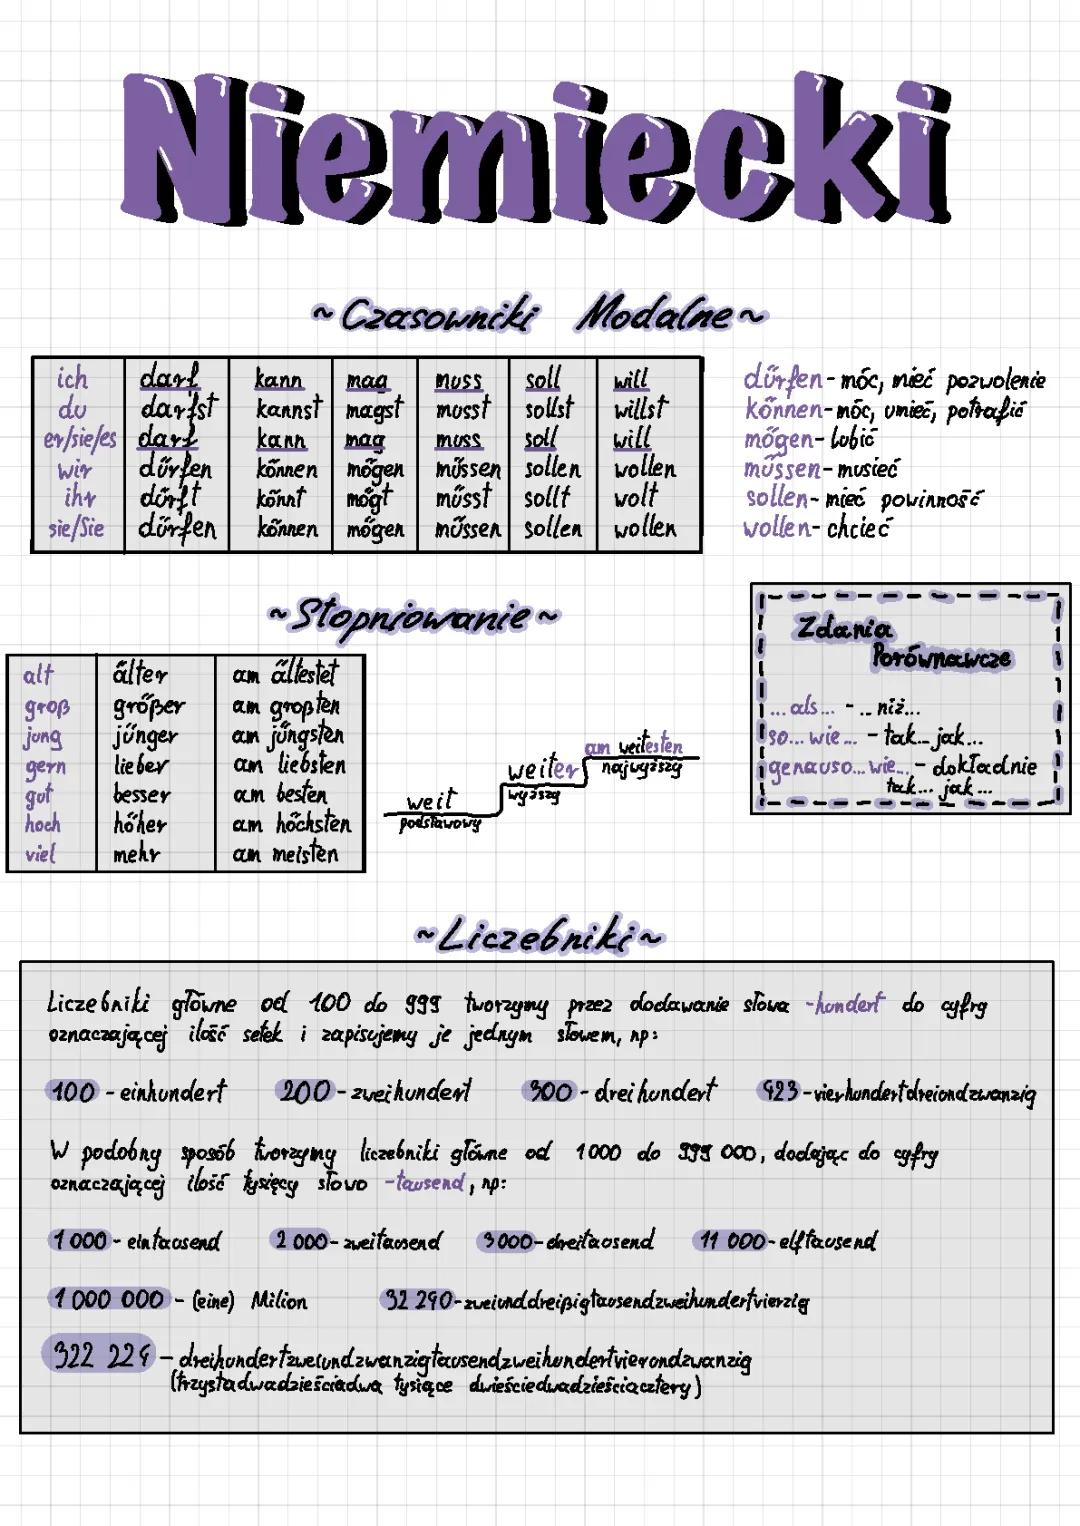 Niemiecki
~Czasowniki Modalne~
ich darf kann mag muss soll will
du darfst kannst magst musst sollst willst
er/sie/es darf kann mag muss soll will
wir dürfen können mögen müssen sollen wollen
ihr dürft könnt mögt müsst sollt wolt
sie/Sie dürfen können mögen müssen sollen wollen
dürfen - móc, mieć pozwolenie
können - móc, umieć, potrafić
mögen - lubić
müssen - musieć
sollen - mieć powinność
wollen - chcieć
~Stopniowanie~
alt älter am ältestet
groß größer am großten
jung jünger am jüngsten
gern lieber am liebsten
gut besser am besten
hoch höher am höchsten
viel mehr am meisten
weit
podstawowy
weiter
wyższy
am weitesten
najwyższy
Zdania
Porównawcze
...als... - ... niż...
so... wie... - tak... jak...
genauso... wie... - dokładnie
tak... jak...
~Liczebniki~
Liczebniki główne od 100 do 999 tworzymy przez dodawanie słowa -hundert do cyfry
oznaczającej ilość setek i zapisujemy je jednym słowem, np:
100 - einhundert 200 - zweihundert 300 - dreihundert 423 - vierhundertdreiundzwanzig
W podobny sposób tworzymy liczebniki główne od 1000 do 999 000, dodając do cyfry
oznaczającej ilość tysięcy słowo -tausend, np:
1 000 - eintausend 2 000 - zweitausend 3 000 - dreitausend 11 000 - elftausend
1 000 000 - (eine) Milion 32 240 - zweiunddreißigtausendzweihundertvierzig
322 224 - dreihundertzweiundzwanzigtausendzweihundertvierundzwanzig
(trzystadwadzieściadwa tysiące dwieściedwadzieściacztery)